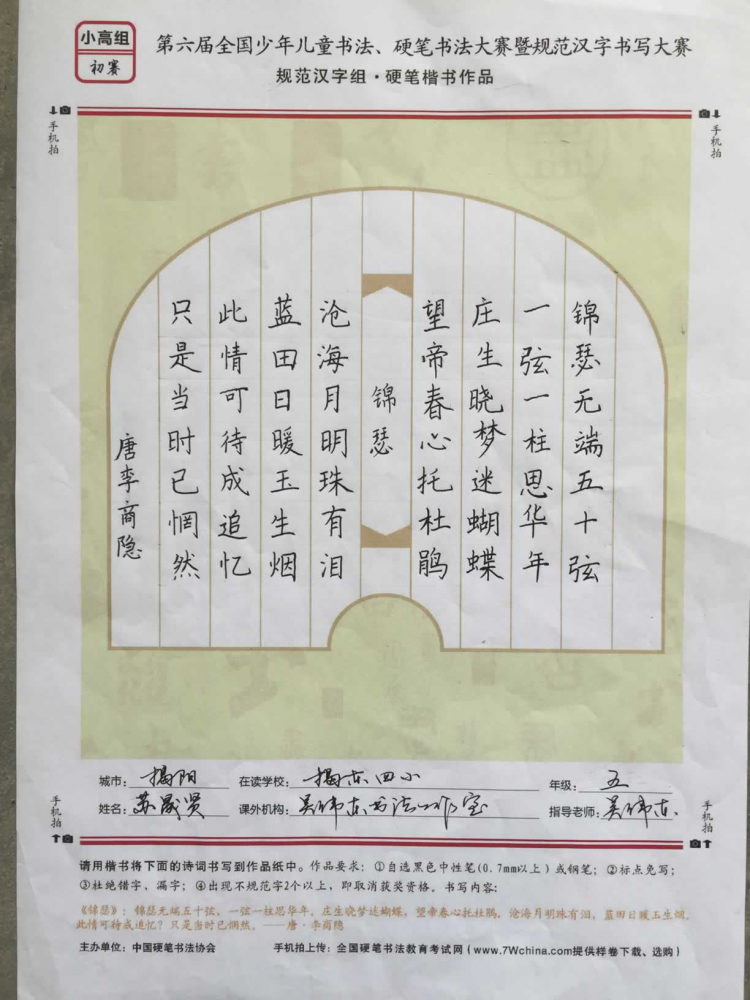 小高组
初赛
第六届全国少年儿童书法、硬笔书法大赛暨规范汉字书写大赛
规范汉字组·硬笔楷书作品
手机拍
手机拍
锦瑟无端五十弦
一弦一柱思华年
庄生晓梦迷蝴蝶
望帝春心托杜鹃
锦瑟
沧海月明珠有泪
蓝田日暖玉生烟
此情可待成追忆
只是当时已惘然
唐李商隐
城市：揭阳 在读学校：揭东四小 年级：五
姓名：苏晟贤 课外机构：吴伟东书法工作室 指导老师：吴伟东
手机拍
手机拍
请用楷书将下面的诗词书写到作品纸中。作品要求：①自选黑色中性笔(0.7mm以上）或钢笔；②标点免写；
③杜绝错字，漏字；④出现不规范字2个以上，即取消获奖资格。书写内容：
《锦瑟》：锦瑟无端五十弦，一弦一柱思华年。庄生晓梦迷蝴蝶，望帝春心托杜鹃。沧海月明珠有泪，蓝田日暖玉生烟。
此情可待成追忆？只是当时已惘然。——唐·李商隐
主办单位：中国硬笔书法协会 手机拍上传：全国硬笔书法教育考试网（www.7Wchina.com提供样卷下载、选购）